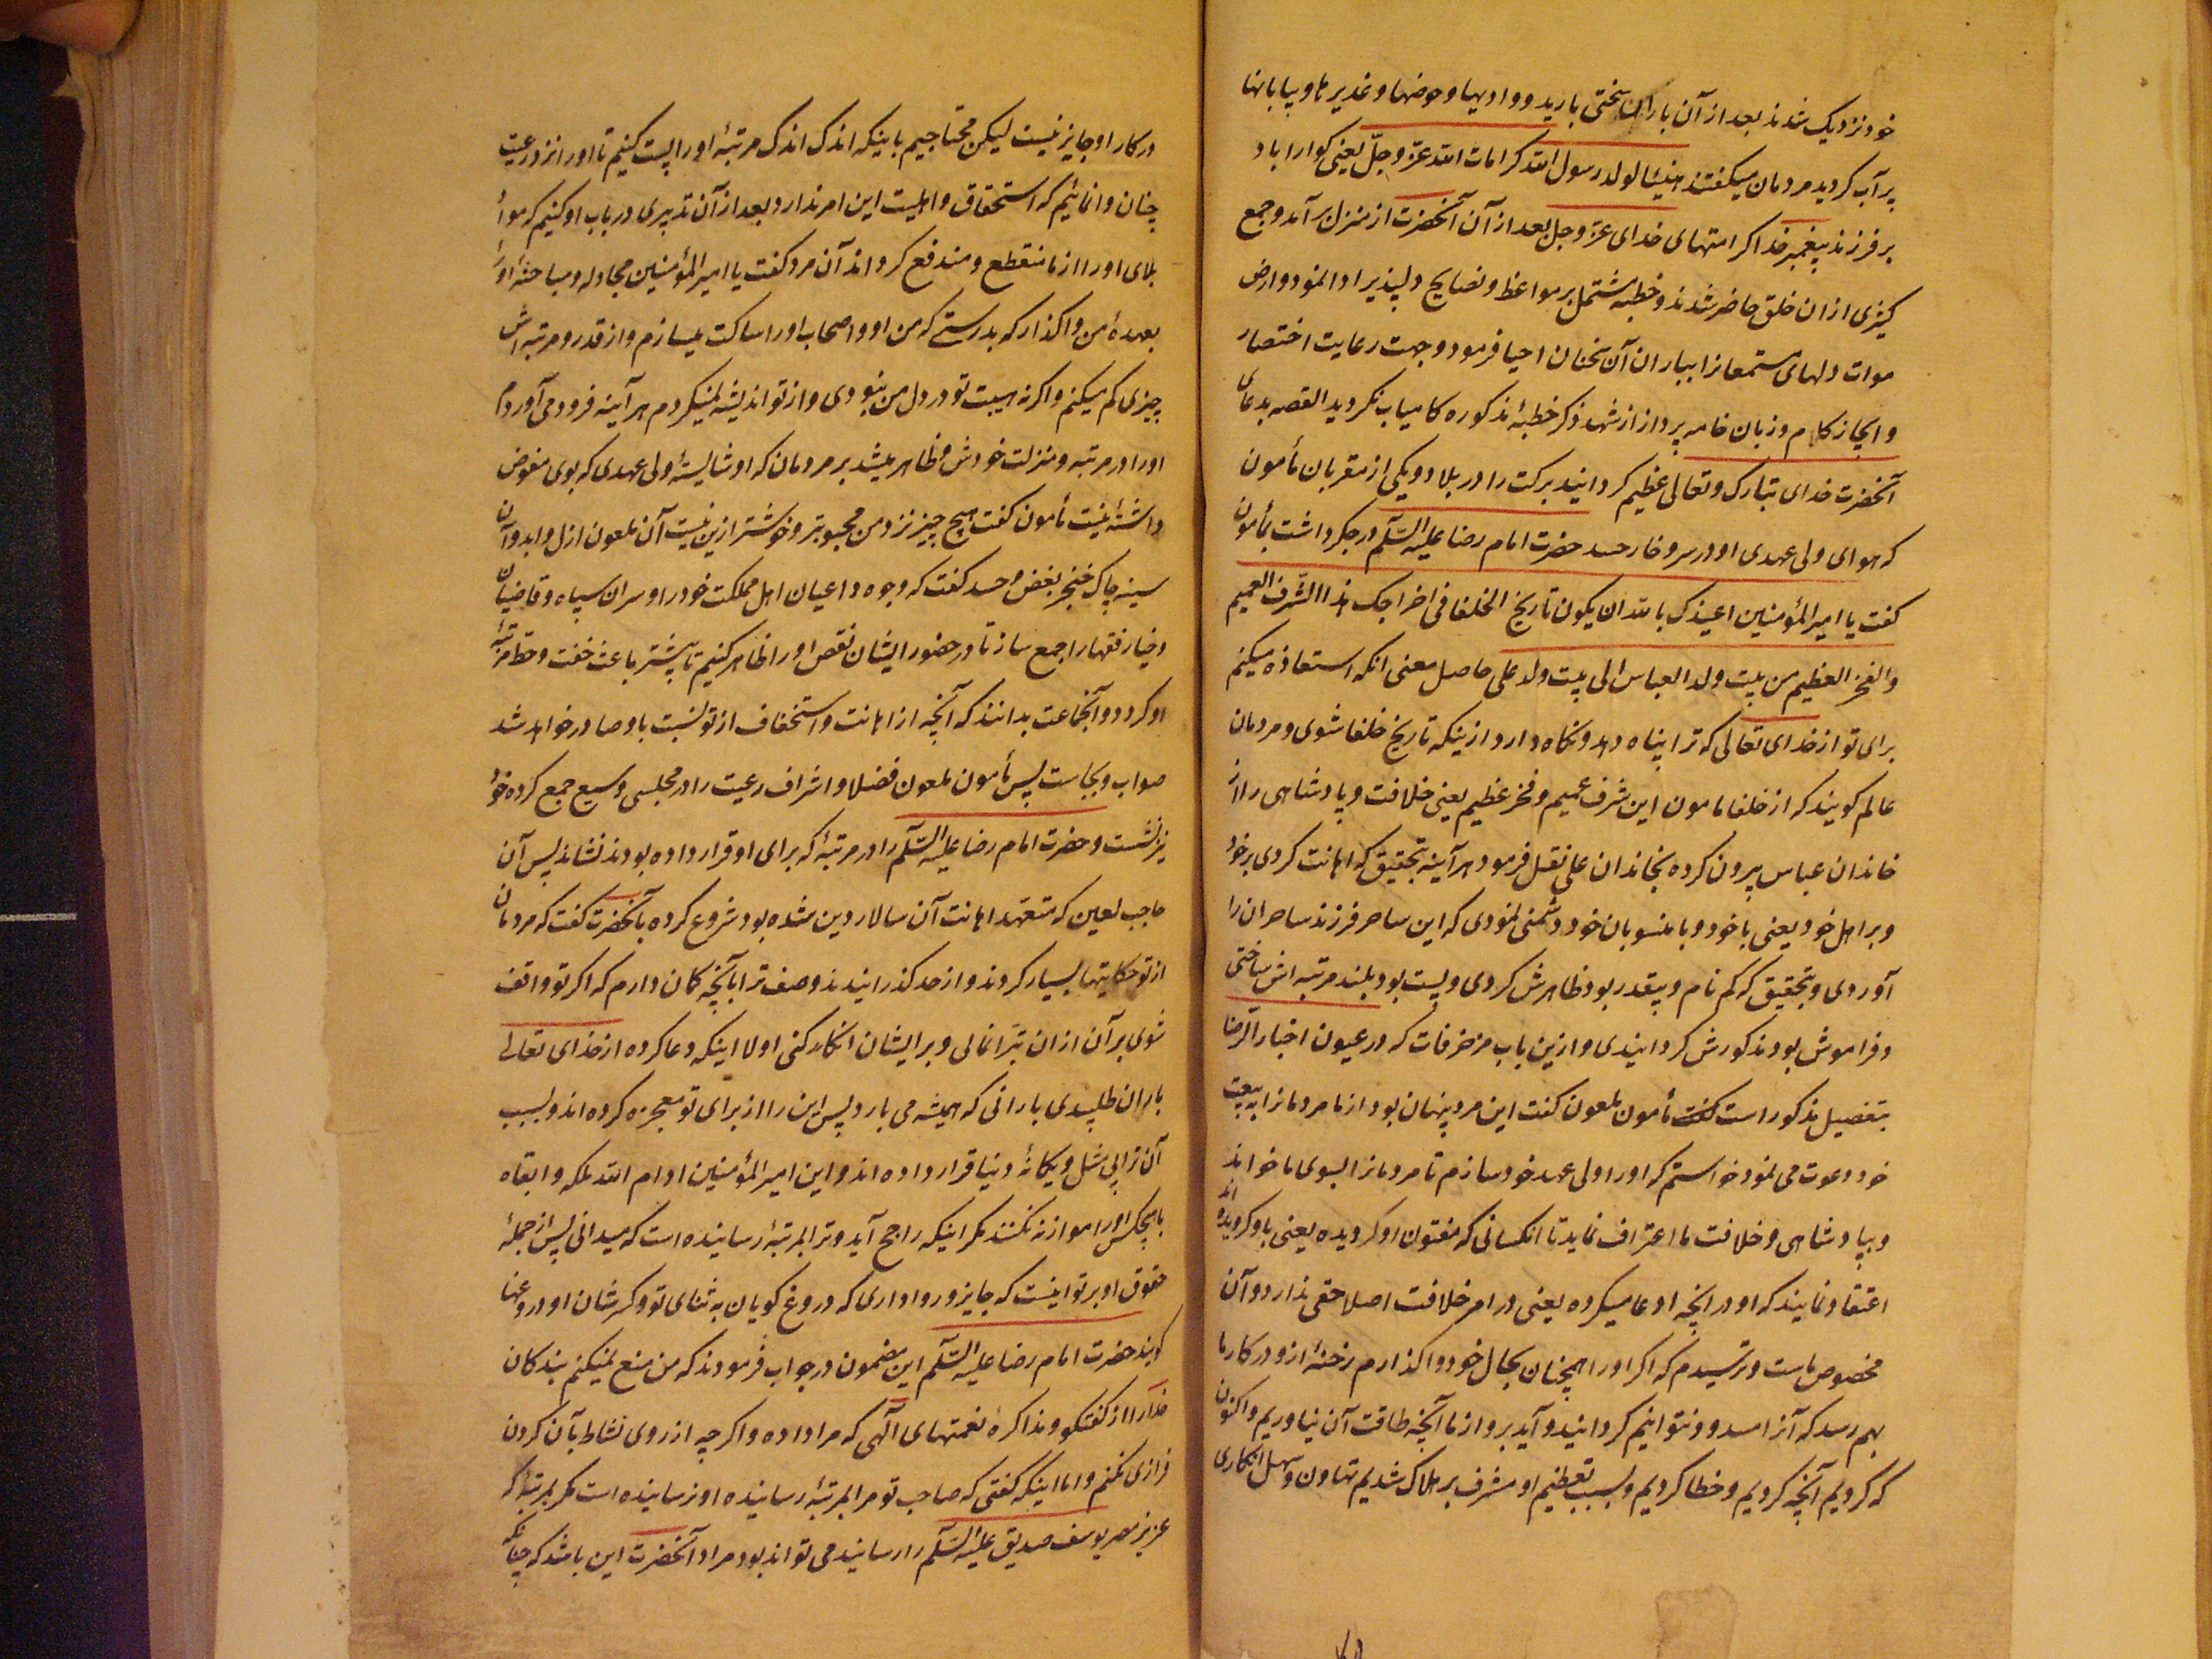 خود نزدیک شدند بعد از آن باران سختی بارید و وادیها و حوضها و غدیرها و بیابانها
پر آب گردید مردمان میگفتند هنیئا لولد رسول الله کرامات الله عزّ و جلّ یعنی گوارا باد
بر فرزند پیغمبر خدا کرامتهای خدای عزّ و جل بعد از آن آنحضرت از منزل بر آمد و جمع
کثیری از ان خلق حاضر شدند و خطبه مشتمل بر مواعظ و نصایح دلپذیر ادا نمود و ارض
موات دلهای مستمعانرا بباران آن سخنان احیا فرمود و جهت رعایت اختصار
و ایجاز کلام وزبان خامه پرداز از شهد ذکر خطبهٔ مذکوره کامیاب نگردید القصه بدعای
آنحضرت خدای تبارک و تعالی عظیم گردانید برکت را در بلاد و یکی از مقربان مأمون
که هوای ولی عهدی او در سر و خار حسد حضرت امام رضا علیه السّلام در جگر داشت بمأمون
گفت یا امیر المؤمنین اعیذک بالله ان یکون تاریخ الخلفا فی اخراجک هذا الشّرف العمیم
و الفخر العظیم من بیت ولد العباس الی بیت ولد علی حاصل معنی انکه استعاذه میکنم
برای تو از خدای تعالی که ترا پناه دهد و نگاه دارد ازینکه تاریخ خلفا شوی و مردمان
عالم گویند که از خلفا مامون این شرف عمیم و فخر عظیم یعنی خلافت و پادشاهی را از
خاندان عباس بیرون کرده بخاندان علی نقل فرمود هر آینه بتحقیق که اهانت کردی بر خود
و بر اهل خود یعنی با خود و با منسوبان خود دشمنی نمودی که این ساحر فرزند ساحران را
آوردی و بتحقیق که کم نام و بیقدر بود ظاهرش کردی و پست بود بلند مرتبه اش ساختی
و فراموش بود مذکورش گردانیدی و ازین باب مزخرفات که در عیون اخبار الرضا
بتفصیل مذکور است گفت مأمون ملعون گفت این مرد پنهان بود از ما مردمانرا به بیعت
خود دعوت می نمود خواستم که او را ولی عهد خود سازم تا مردمانرا بسوی ما خواند
و بپادشاهی و خلافت ما اعتراف نماید تا انکسانی که مفتون او گردیده یعنی باو گرویده اند
اعتقاد نمایند که او در انچه ادعا میکرده یعنی در امر خلافت اصلا حقی ندارد و آن
مخصوص ماست و ترسیدم که اگر او را همچنان بحال خود واگذارم رخنهٔ ازو در کار ما
بهم رسد که آنرا سد و نتوانیم گردانید و آید برو از ما آنچه طاقت آن نیاوریم و اکنون
که کردیم آنچه کردیم و خطا کردیم و بسبب تعظیم او مشرف بر هلاک شدیم تهاون و سهل انکاری
در کار او جایز نیست لیکن محتاجیم باینکه اندک اندک مرتبهٔ او را پست کنیم تا او را نزد رعیت
چنان وانمائیم که استحقاق و اهلیت این امر ندارد و بعد از آن تدبیری در باب او کنیم که مواد
بلای او را از ما منقطع و مندفع گرداند آن مرد گفت یا امیر المؤمنین مجادله و مباحثهٔ او را
بعهدهٔ من واگذار که بدرستی که من او و اصحاب او را ساکت میسازم و از قدر و مرتبه اش
چیزی کم میکنم و اگر نه هیبت تو در دل من بودی و از تو اندیشه نمیکردم هر آینه فرود می آوردم
او را در مرتبه و منزلت خودش و ظاهر میشد بر مردمان که او شایستهٔ ولی عهدی که بوی مفوض
داشتهٔ نیست مأمون گفت هیچ چیز نزد من محبوبتر و خوشتر ازین نیست آن ملعون ازل و ابد و آن
سینه چاک خنجر بغض و حسد گفت که وجوه و اعیان اهل مملکت خود را و سران سپاه و قاضیان
و خیار فقها را جمع ساز تا در حضور ایشان نقص او را ظاهر کنیم تا بیشتر باعث خفت و حط مرتبهٔ
او گردد و آنجماعت بدانند که آنچه از اهانت و استخفاف از تو نسبت باو صادر خواهد شد
صواب و بجاست پس مأمون ملعون فضلا و اشراف رعیت را در مجلسی وسیع جمع کرده خود
نیز نشست و حضرت امام رضا علیه السّلام را در مرتبهٔ که برای او قرار داده بودند نشاند پس آن
حاجب لعین که متعهد اهانت آن سالار دین شده بود شروع کرده بآنحضرت گفت که مردمان
از تو حکایتها بسیار کردند و از حد گذرانیدند وصف ترا بآنچه گمان دارم که اگر تو واقف
شوی بر آن از ان تبرّا نمائی و بر ایشان انکار کنی اولا اینکه دعا کرده از خدای تعالی
باران طلبیدی بارانی که همیشه می بارد پس این را از برای تو معجزه کرده اند و بسبب
آن ترا بی مثل و یگانهٔ دنیا قرار داده اند و این امیر المؤمنین ادام الله ملکه و ابقاه
با هیچکس او را موازنه نکنند مگر اینکه راجح آید و ترا بمرتبهٔ رسانیده است که میدانی پس از جملهٔ
حقوق او بر تو اینست که جایز و روا نداری که دروغ گویان به ثنای تو و کسر شان او دروغها
گویند حضرت امام رضا علیه السّلام این مضمون در جواب فرمودند که من منع نمیکنم بندگان
خدا را از گفتگو و مذاکره نعمتهای آلهی که مرا داده و اگر چه از روی نشاط بآن گردن
فرازی نکنم و اما اینکه گفتی که صاحب تو مرا بمرتبهٔ رسانیده او نرسانیده است مگر بمرتبهٔ که
عزیز مصر یوسف صدیق علیه السّلام را رسانید می تواند بود مراد آنحضرت این باشد که چنانکه